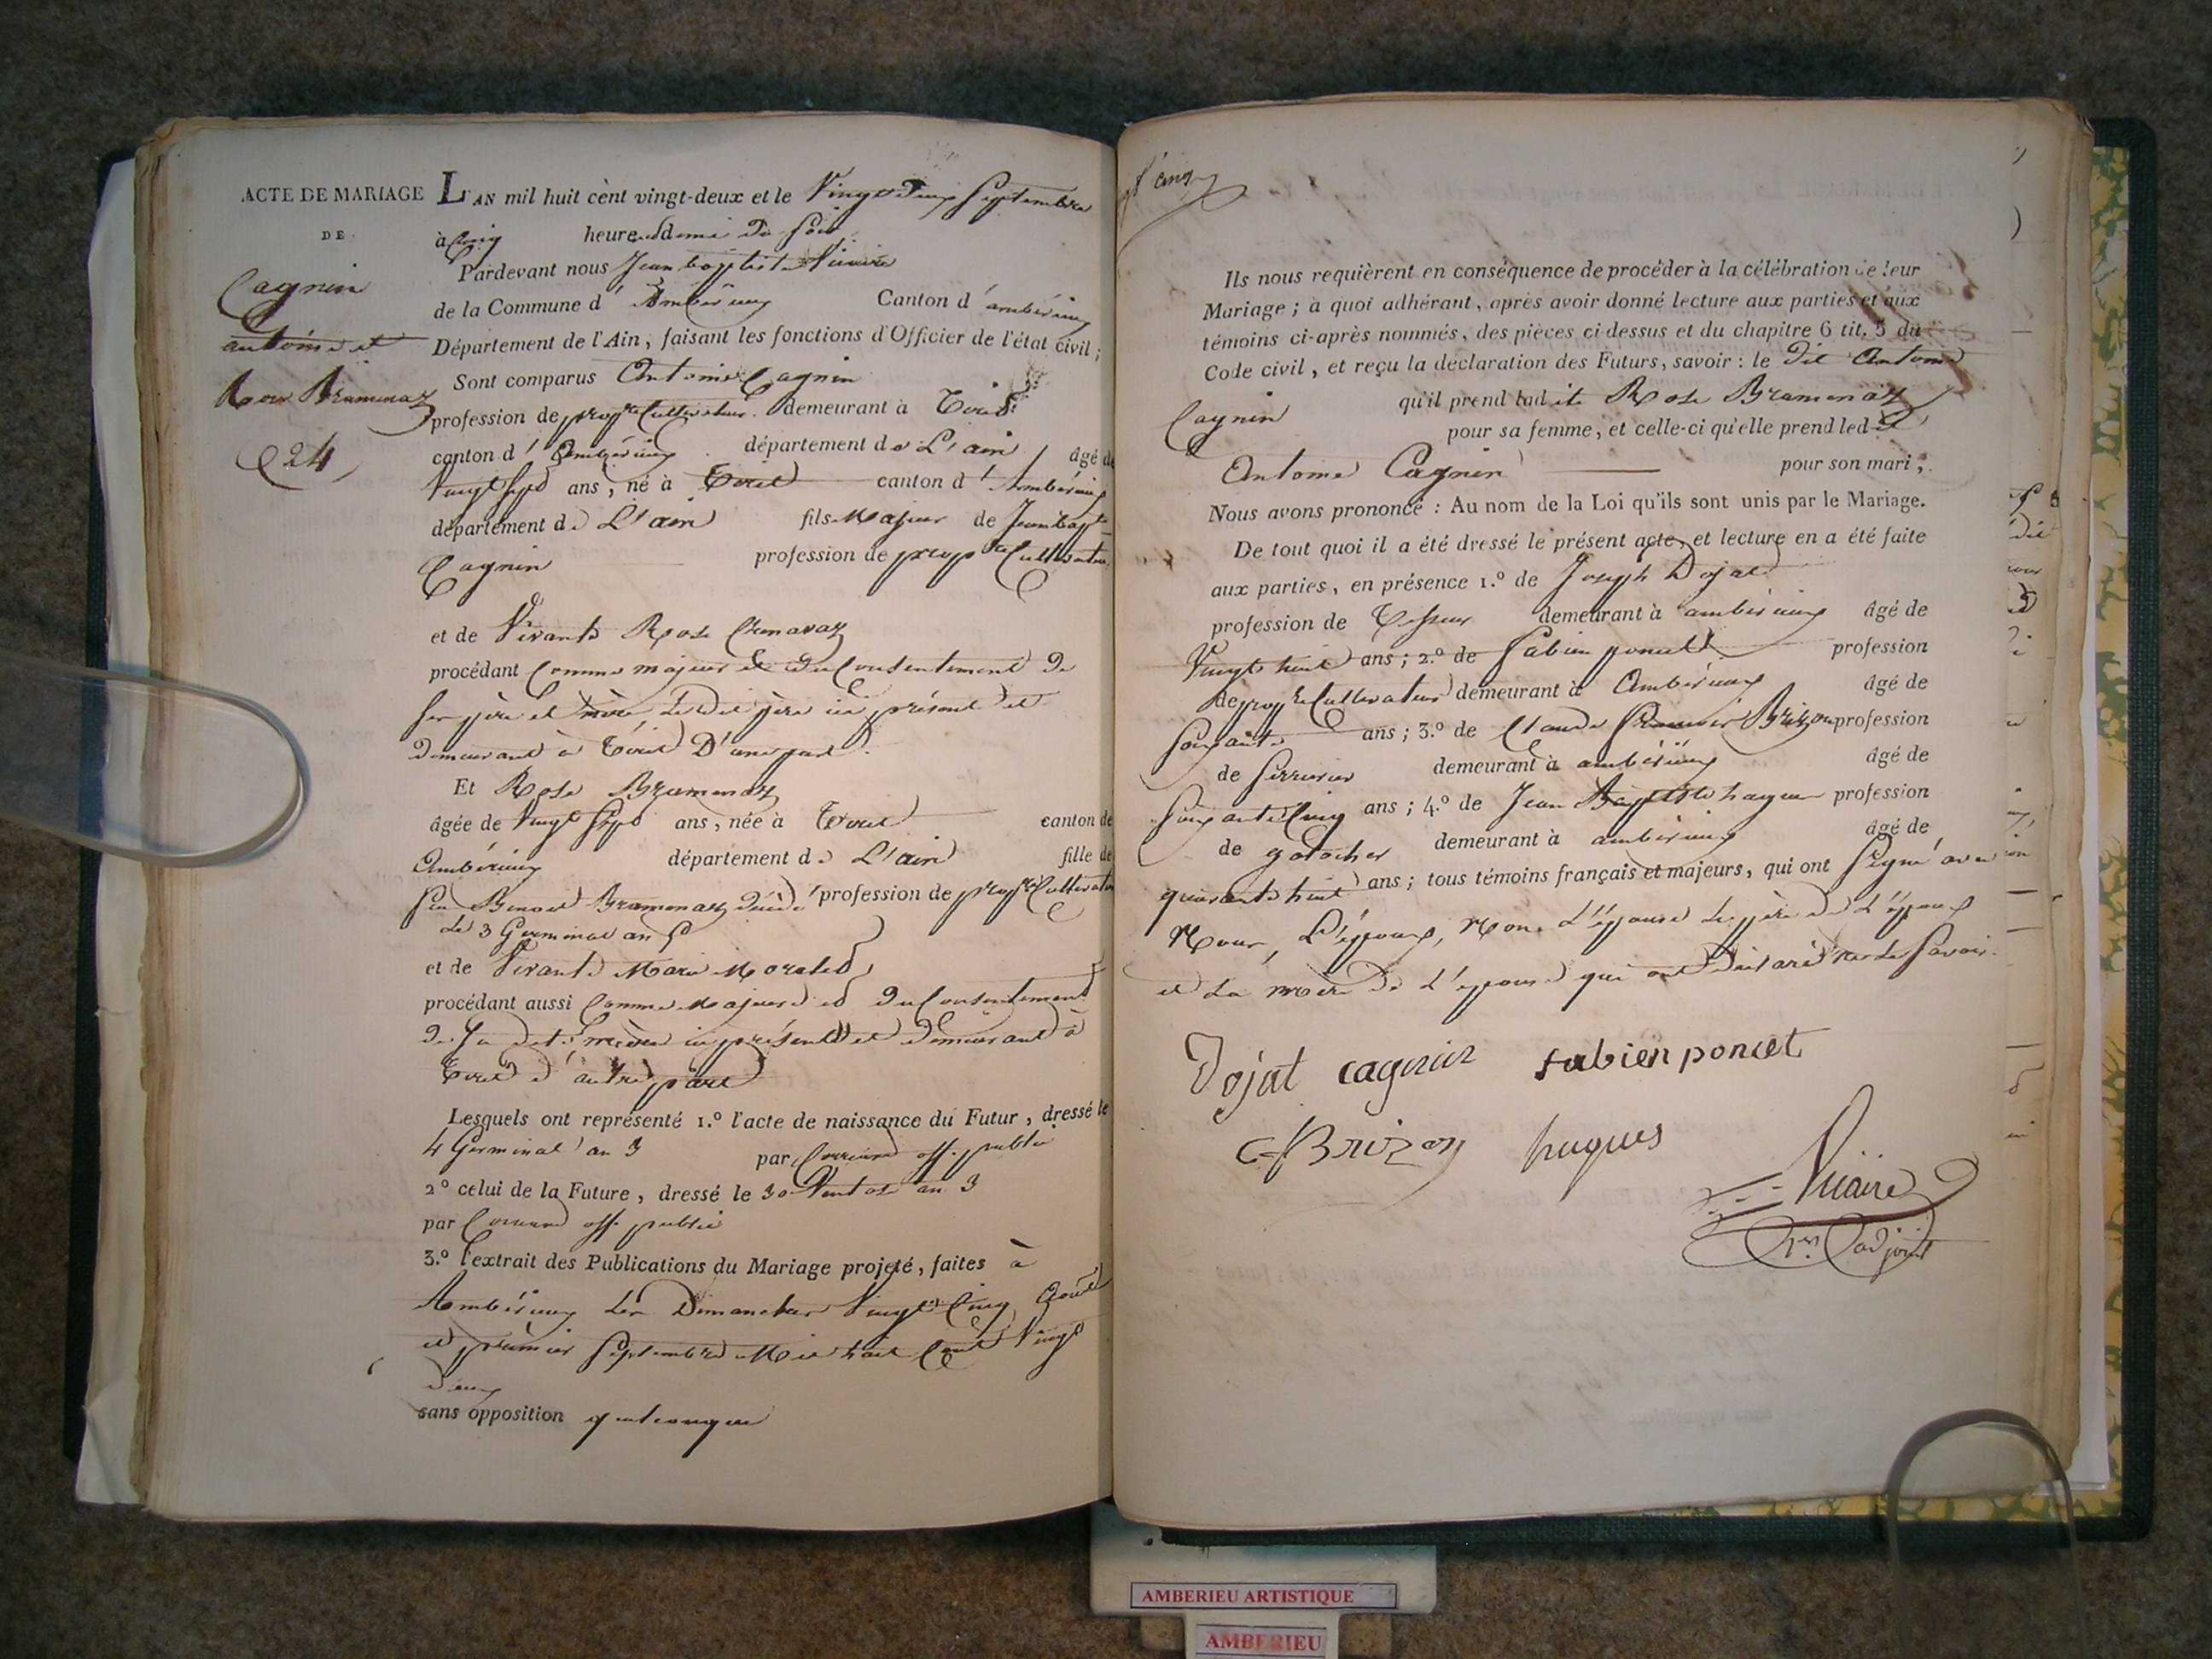 ACTE DE MARIAGE
DE
Cagnin
antoine et
Rose Bramenaz
24
L'AN mil huit cènt vingt-deux et le Vingt Deux Septembre
à Cinq heure et demie du Soir
Pardevant nous Jean baptiste Vicaire
de la Commune d' Ambérieux Canton d' ambérieux
Département de l'Ain, faisant les fonctions d'Officier de l'état civil ;
Sont comparus Antoine Cagnin
profession de prop.re Cultivateur demeurant à Tiret
canton d' Ambérieux département de L'ain âgé de
Vingt Sept ans, né à Tiret canton d' Ambérieux
département de L'ain fils Majeur de Jean bapte
Cagnin profession de prop.re Cultivateur
et de Vivante Rose
procédant Comme majeur et du Consentement de
ses père et mère, Le Dit père ici présent et
demeurant à Tiret D'une part.
Et Rose Bramenaz
âgée de Vingt Sept ans, née à Tiret canton de
Ambérieux département de L'ain fille de
feu Benoit Bramenaz décédé profession de prop.re Cultivateur
Le 3 Germinal an
et de Vivante Marie
procédant aussi Comme Majeure et du Consentement
de Sa dite mère ici présente et demeurant à
Tiret d'autre part
Lesquels ont représenté 1.º l'acte de naissance du Futur, dressé le
4 Germinal an 3 par off. public
2º celui de la Future, dressé le 30 Ventose an 3
par off. public
3.º l'extrait des Publications du Mariage projeté, faites à
Ambérieux Les Dimanches Vingt Cinq Août
et premier Septembre Mil huit Cent Vingt
deux
sans opposition quelconque
Ils nous requièrent en conséquence de procéder à la célébration de leur
Mariage ; à quoi adhérant, après avoir donné lecture aux parties et aux
témoins ci-après nommés, des pièces ci-dessus et du chapitre 6 tit. 5 du
Code civil, et reçu la déclaration des Futurs, savoir : le dit Antoine
Cagnin qu'il prend ladite Rose Bramenaz
pour sa femme, et celle-ci qu'elle prend ledit
Antoine Cagnin pour son mari ;
Nous avons prononcé : Au nom de la Loi qu'ils sont unis par le Mariage.
De tout quoi il a été dressé le présent acte, et lecture en a été faite
aux parties, en présence 1.º de Joseph Dojat
profession de Tisseur demeurant à ambérieux âgé de
Vingt huit ans ; 2.º de fabien poncet profession
de prop.re Cultivateur demeurant à Ambérieux âgé de
Soixante ans ; 3.º de Claude Brizon profession
de Serrurier demeurant à ambérieux âgé de
Soixante Cinq ans ; 4.º de Jean Baptiste hugues profession
de demeurant à ambérieux âgé de
quarante huit ans ; tous témoins français et majeurs, qui ont Signé avec
Nous, L'époux, Non L'épouse Le père de L'époux
et La mère de L'épouse qui ont déclaré ne le Savoir.
Dojat cagnin fabien poncet
Brizon hugues
Vicaire
adjoint
AMBERIEU ARTISTIQUE
AMBERIEU